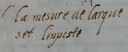 la mesure de larque
set limposte